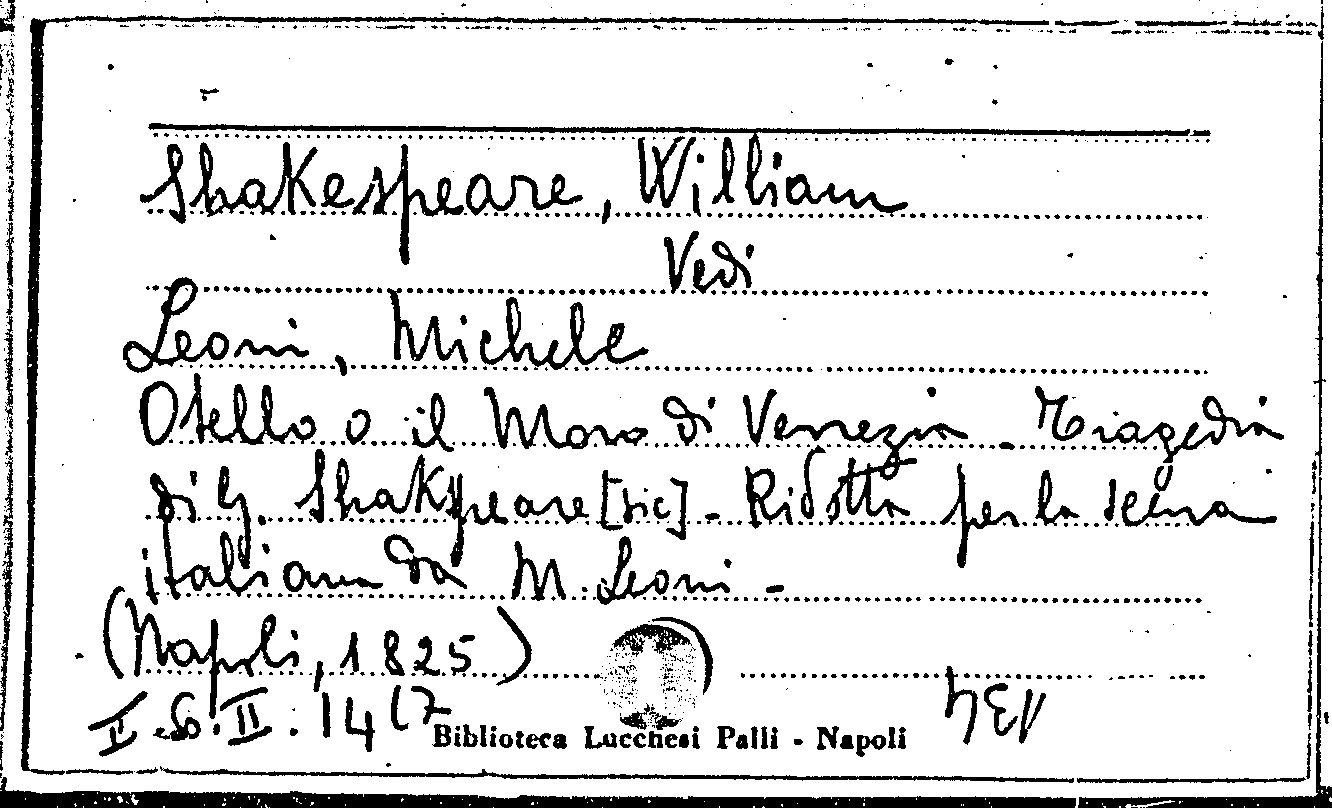 Shakespeare, William
Vedi
Leoni, Michele
Otello o il Moro di Venezia - Tragedia
di G. Shakspeare [sic] - Ridotta per la scena
italiana da M. Leoni -
(Napoli, 1825)
II. 14 (7
Biblioteca Lucchesi Palli - Napoli